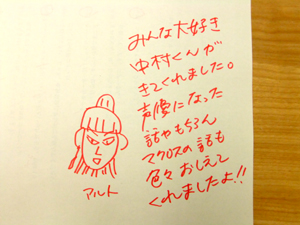 みんな大好き
中村くんが
きてくれました。
声優になった
話やもちろん
マクロスの話も
色々おしえて
くれましたよ!!
アルト